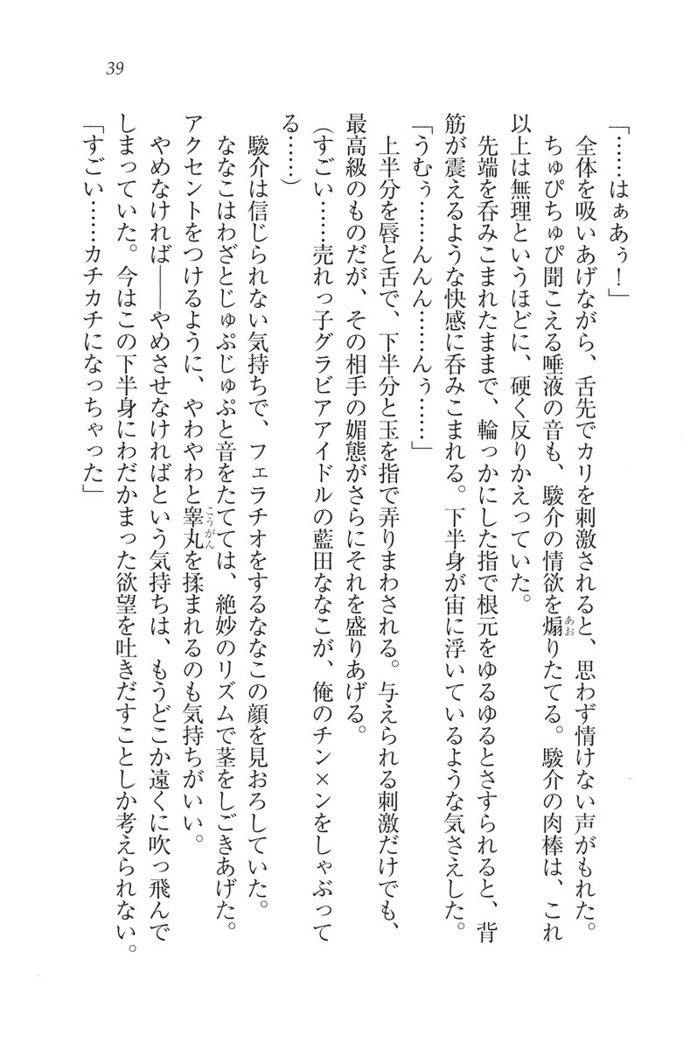 39
「……はぁあぅ！」
全体を吸いあげながら、舌先でカリを刺激されると、思わず情けない声がもれた。
ちゅぴちゅぴ聞こえる唾液の音も、駿介の情欲を煽りたてる。駿介の肉棒は、これ
以上は無理というほどに、硬く反りかえっていた。
先端を呑みこまれたままで、輪っかにした指で根元をゆるゆるとさすられると、背
筋が震えるような快感に呑みこまれる。下半身が宙に浮いているような気さえした。
「うむぅ……んんん……んぅ……」
上半分を唇と舌で、下半分と玉を指で弄りまわされる。与えられる刺激だけでも、
最高級のものだが、その相手の媚態がさらにそれを盛りあげる。
(すごい……売れっ子グラビアアイドルの藍田ななこが、俺のチン×ンをしゃぶって
る……)
駿介は信じられない気持ちで、フェラチオをするななこの顔を見おろしていた。
ななこはわざとじゅぷじゅぷと音をたてては、絶妙のリズムで茎をしごきあげた。
アクセントをつけるように、やわやわと睾丸を揉まれるのも気持ちがいい。
やめなければ――やめさせなければという気持ちは、もうどこか遠くに吹っ飛んで
しまっていた。今はこの下半身にわだかまった欲望を吐きだすことしか考えられない。
「すごい……カチカチになっちゃった」
あお
こうがん